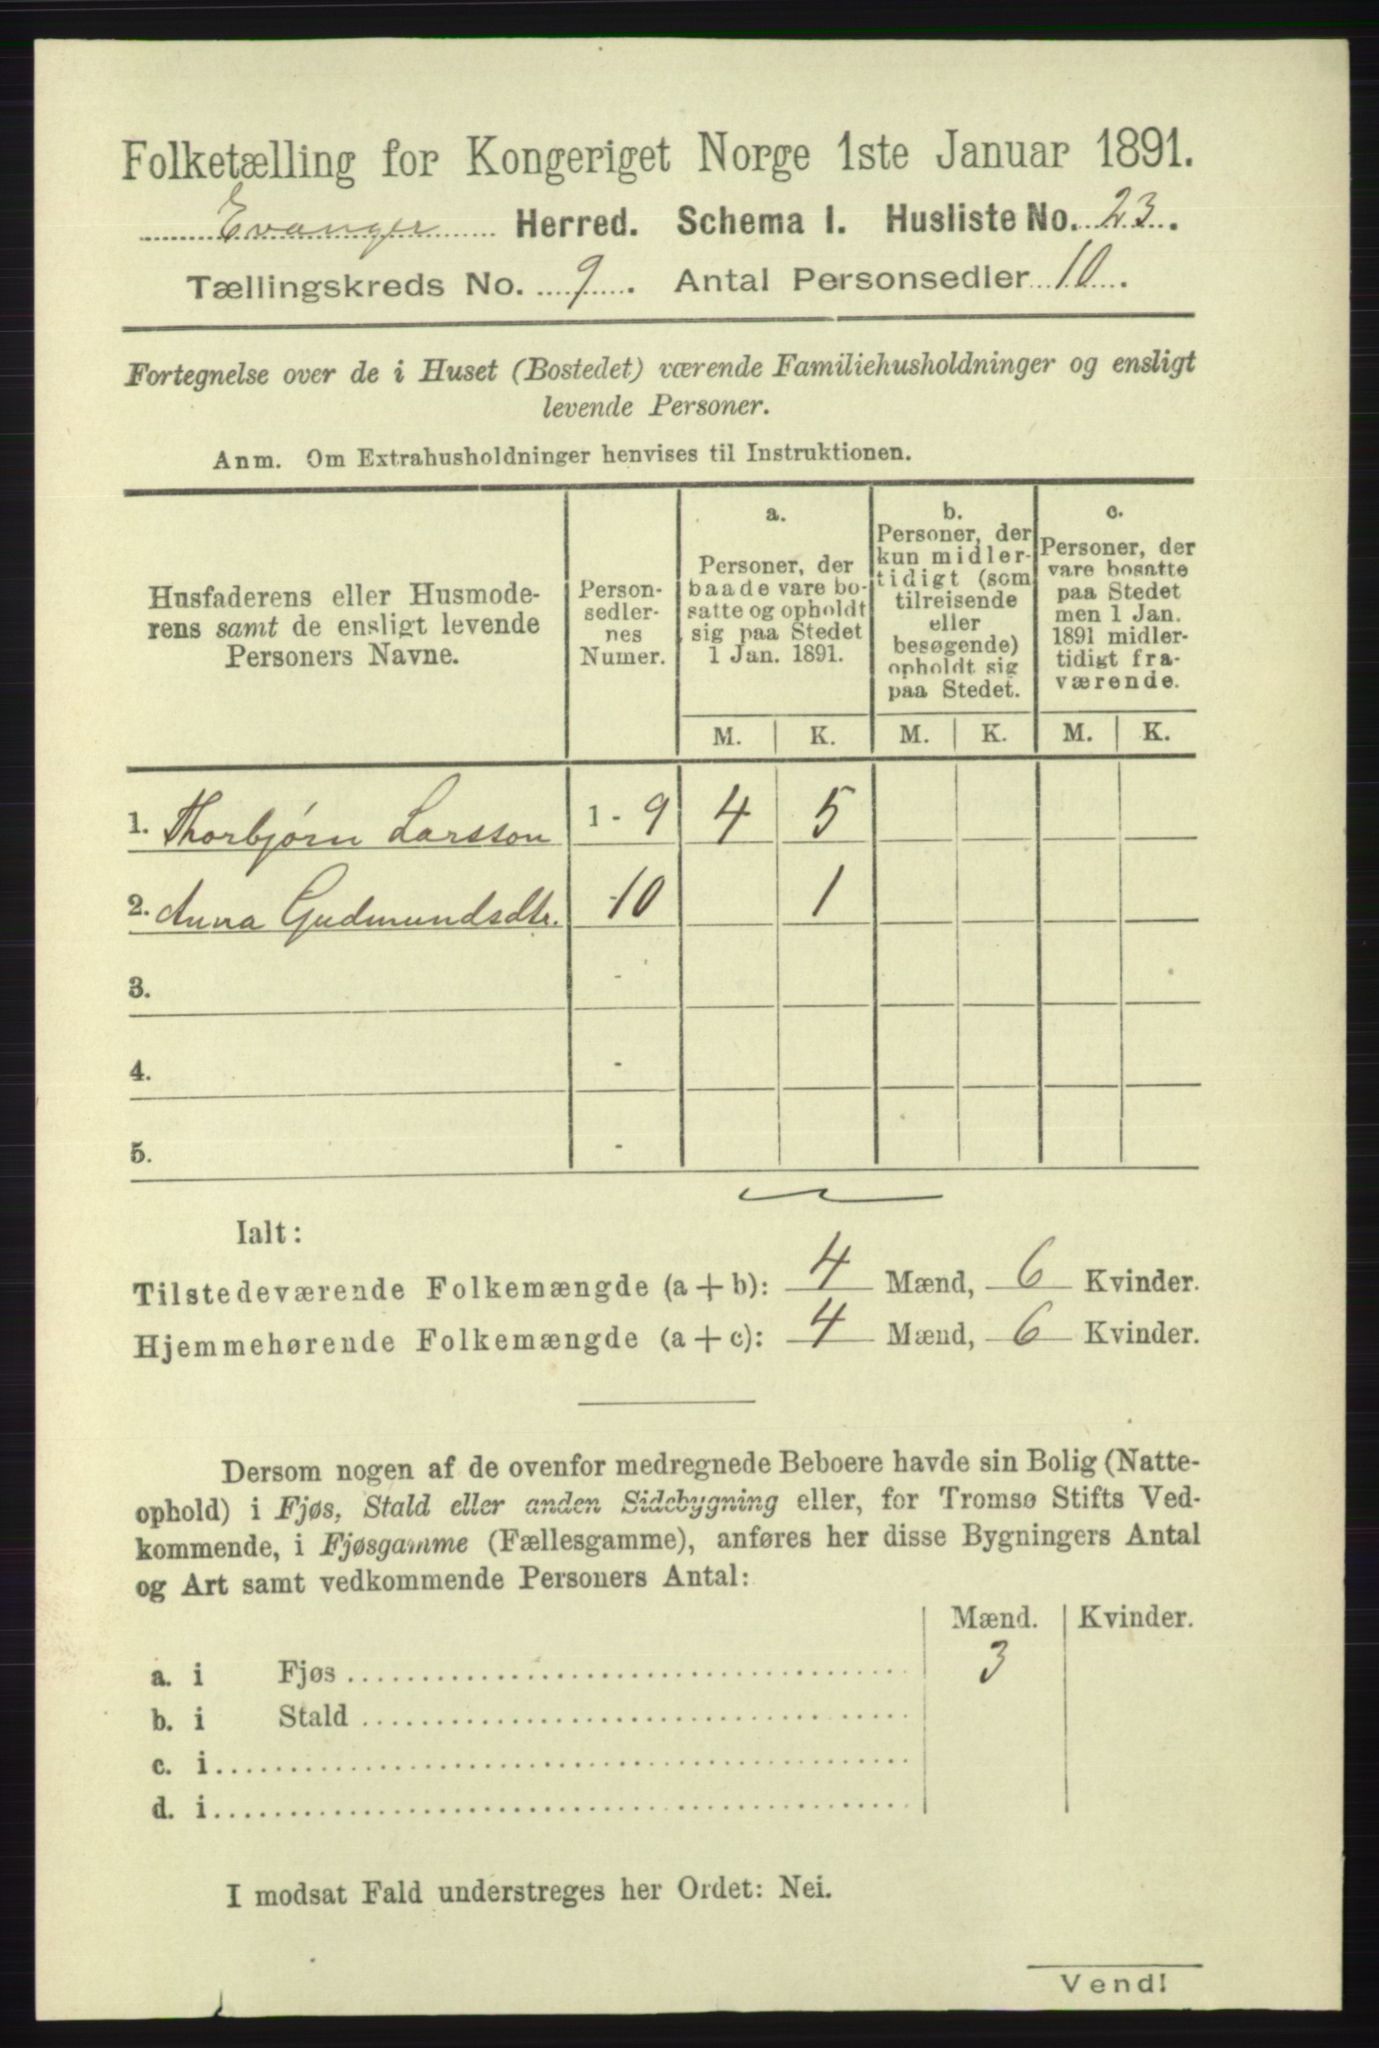 Folketælling for Kongeriget Norge 1ste Januar 1891.
Evanger Herred. Schema I. Husliste No. 23.
Tællingskreds No. 9. Antal Personsedler 10.
Fortegnelse over de i Huset (Bostedet) værende Familiehusholdninger og ensligt
levende Personer.
Anm. Om Extrahusholdninger henvises til Instruktionen.
Husfaderens eller Husmode-
rens samt de ensligt levende
Personers Navne.
Person-
sedler-
nes
Numer.
a.
Personer, der
baade vare bo-
satte og opholdt
sig paa Stedet
1 Jan. 1891.
b.
Personer, der
kun midler-
tidigt (som
tilreisende
eller
besøgende)
opholdt sig
paa Stedet.
c.
Personer, der
vare bosatte
paa Stedet
men 1 Jan.
1891 midler-
tidigt fra-
værende.
M. K. M. K. M. K.
1. Thorbjørn Larsson 1 - 9 4 5
2. Anna Gudmundsdtr. - 10 1
3. -
4. -
5. -
Ialt:
Tilstedeværende Folkemængde (a + b): 4 Mænd, 6 Kvinder.
Hjemmehørende Folkemængde (a + c): 4 Mænd, 6 Kvinder.
Dersom nogen af de ovenfor medregnede Beboere havde sin Bolig (Natte-
ophold) i Fjøs, Stald eller anden Sidebygning eller, for Tromsø Stifts Ved-
kommende, i Fjøsgamme (Fællesgamme), anføres her disse Bygningers Antal
og Art samt vedkommende Personers Antal:
Mænd. Kvinder.
a. i Fjøs 3
b. i Stald
c. i
d. i
I modsat Fald understreges her Ordet: Nei.
Vend!